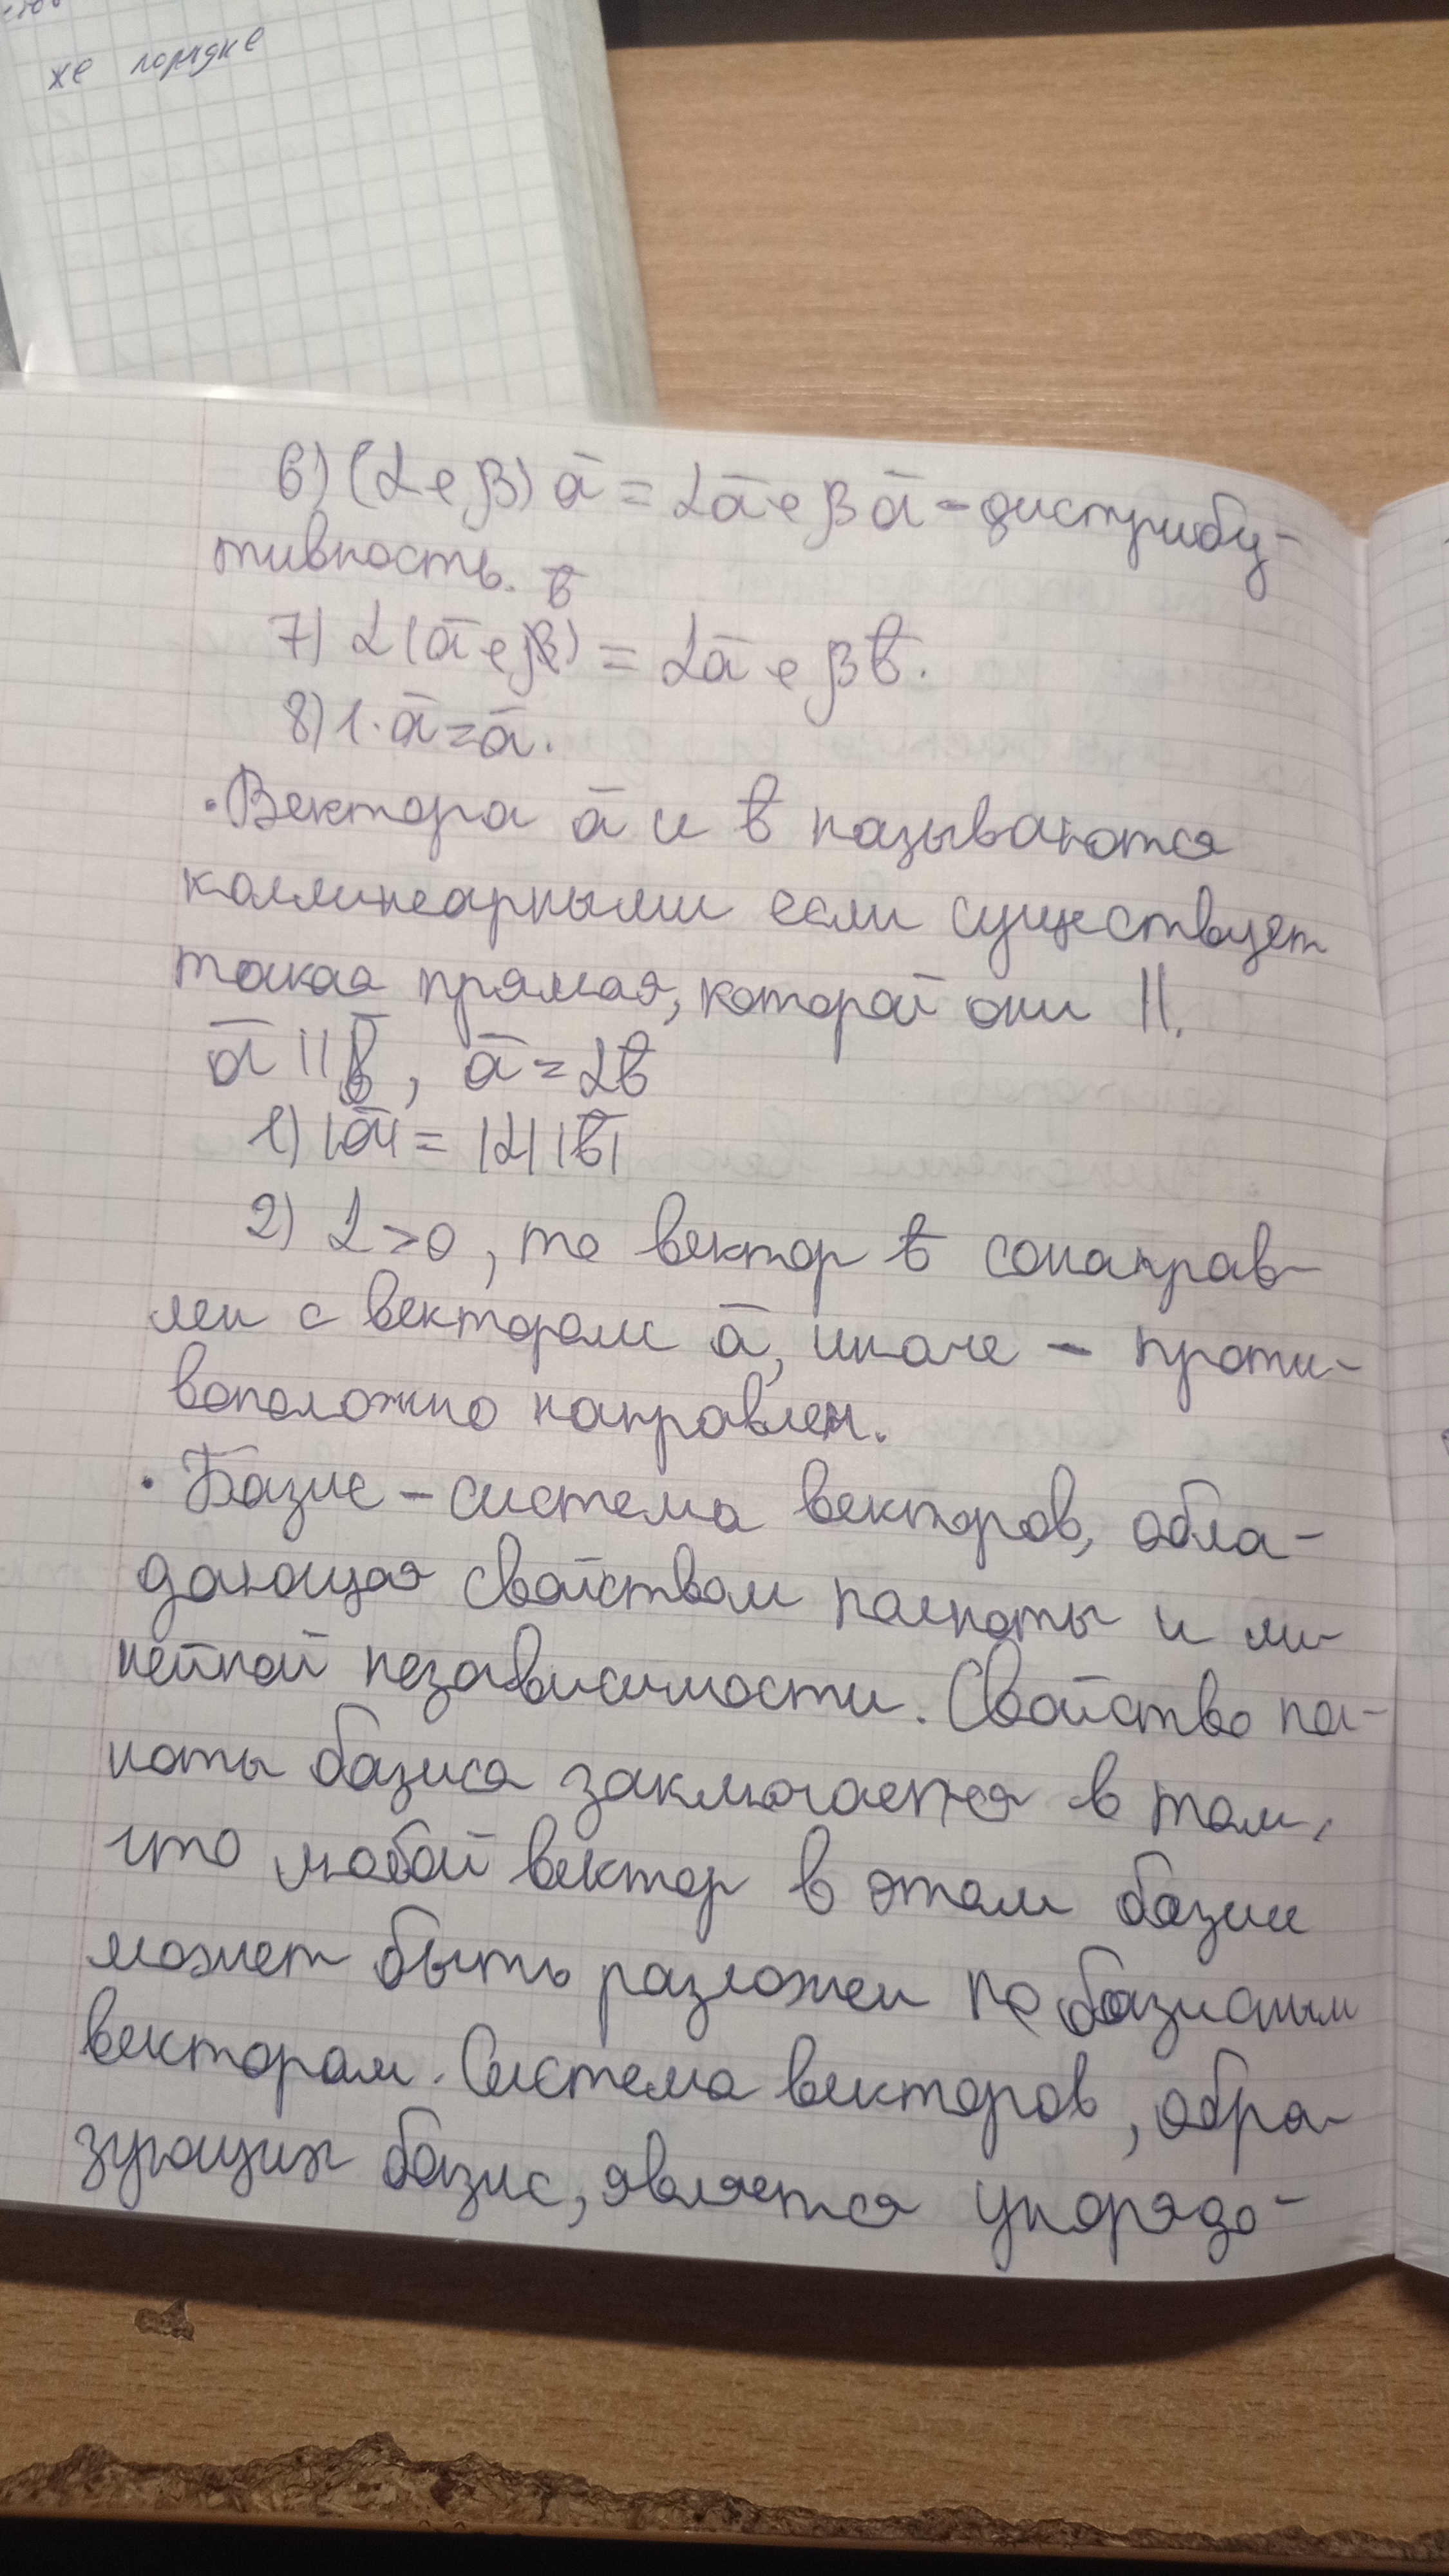 же порядке
6) (α+β) ā = αā+βā - дистрибу-
тивность. b̄
7) α(ā+β) = αā+βb̄.
8) 1·ā=ā.
• Вектора ā и b̄ называются
коллинеарными если существует
такая прямая, которой они ||.
ā || b̄, ā = αb̄
1) |ā| = |α||b̄|
2) α>0, то вектор b̄ сонаправ-
лен с вектором ā, иначе - проти-
воположно направлен.
• Базис - система векторов, обла-
дающая свойством полноты и ли-
нейной независимости. Свойство пол-
ноты базиса заключается в том,
что любой вектор в этом базисе
может быть разложен по базисным
векторам. Система векторов, обра-
зующих базис, является упорядо-